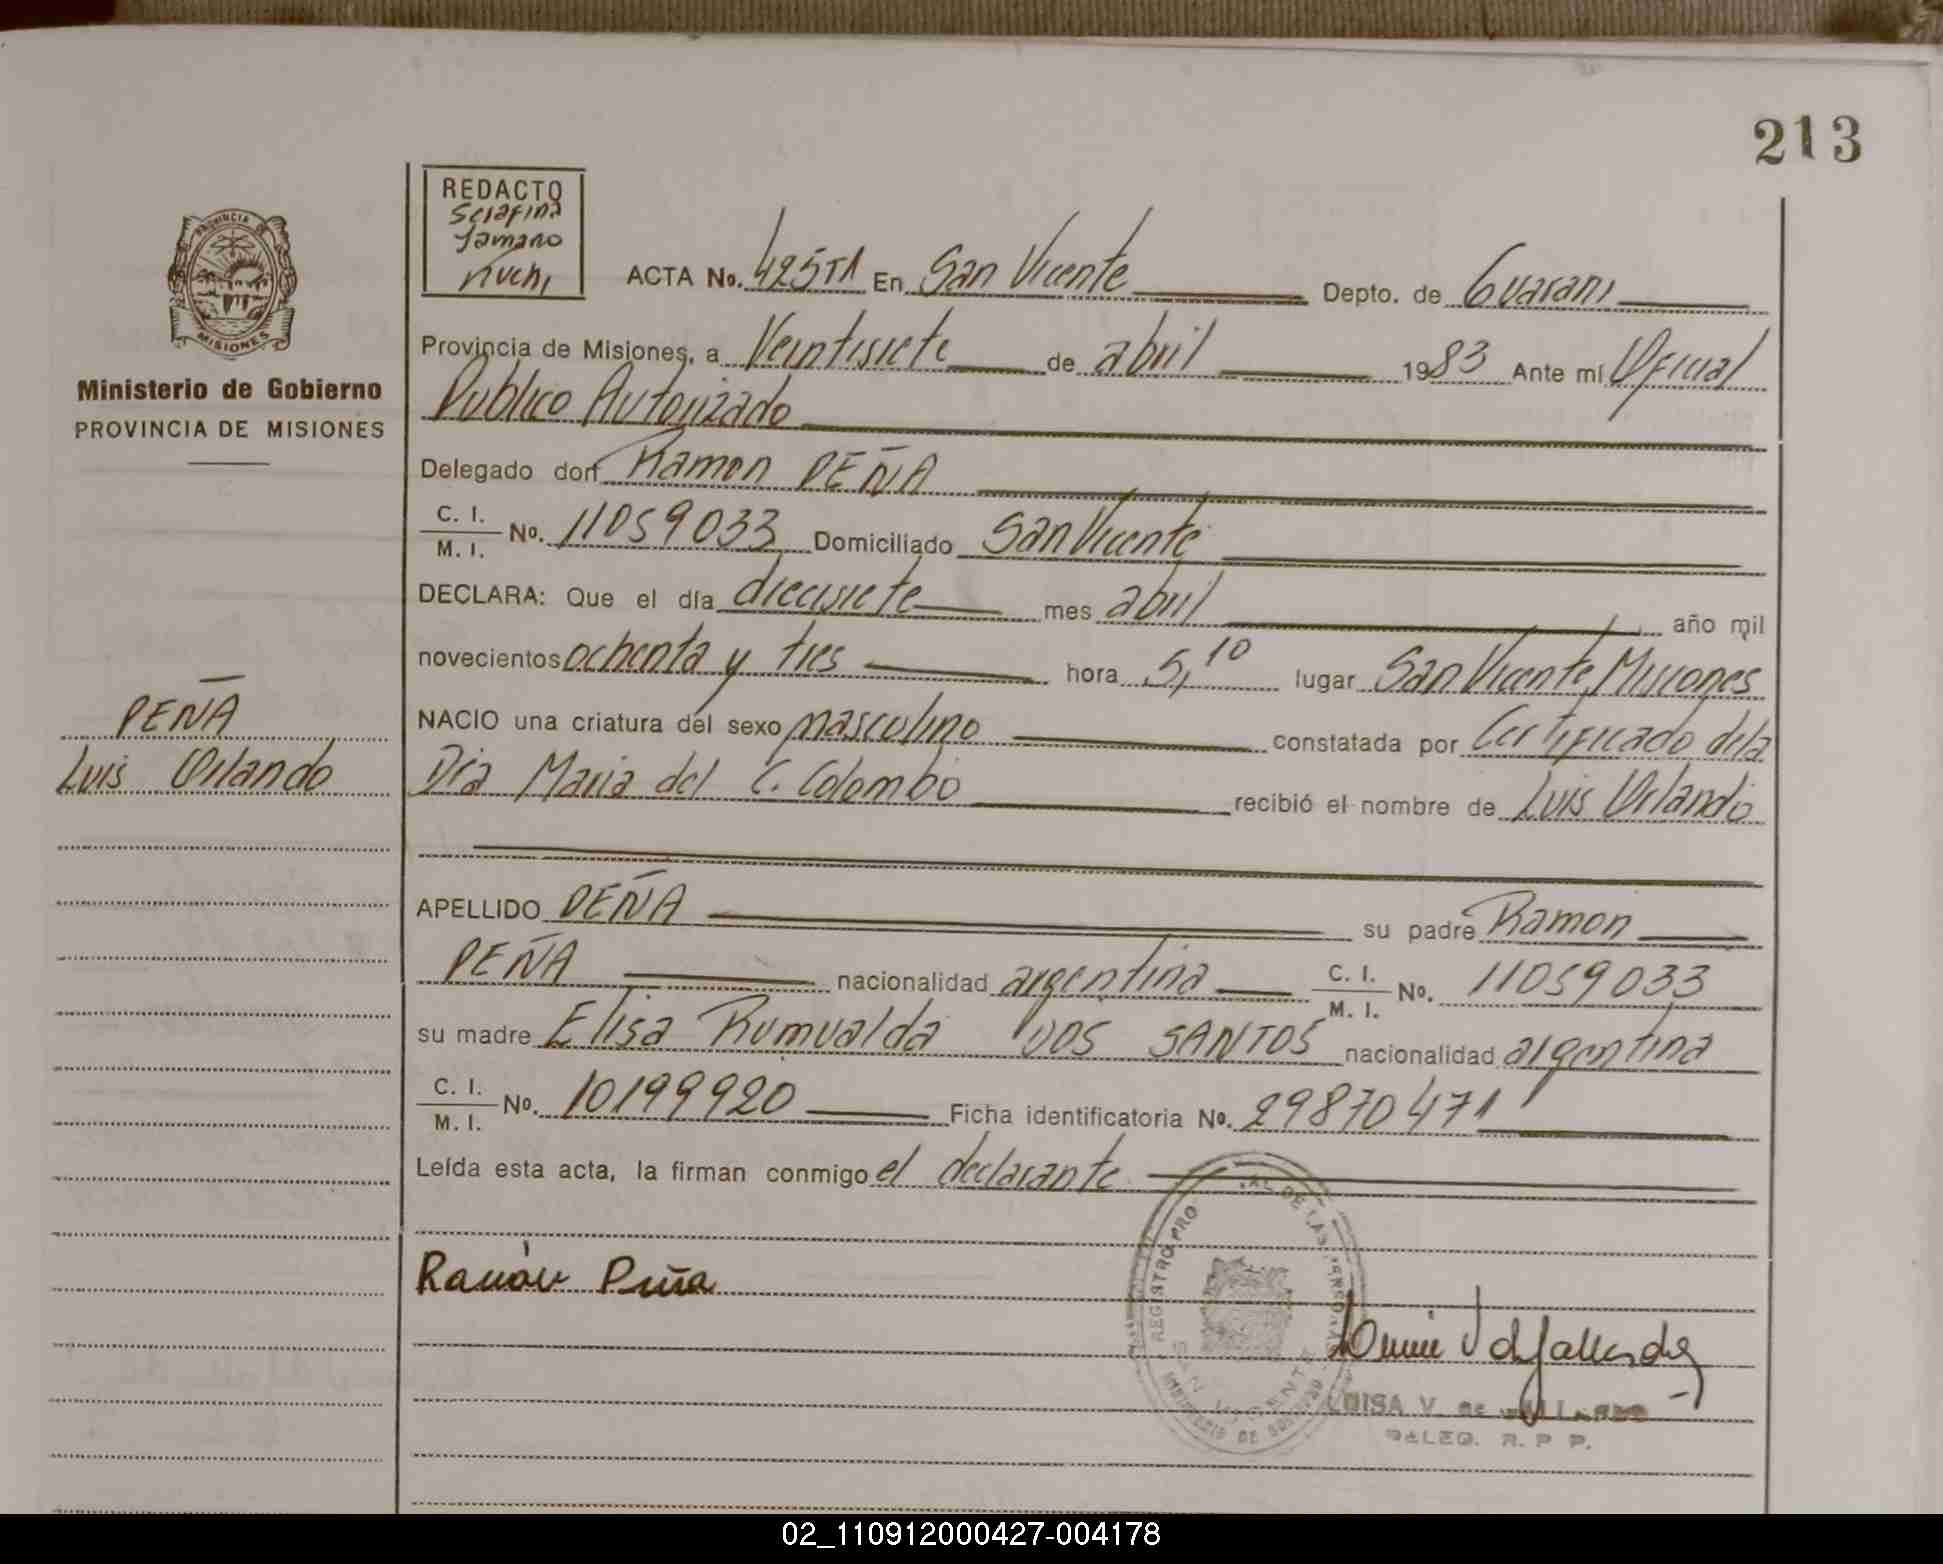 213
REDACTO
Serafina
Tamaño
Kuchi
ACTA No. 425T1 En San Vicente Depto. de Guarani
PROVINCIA DE
MISIONES
Ministerio de Gobierno
PROVINCIA DE MISIONES
Provincia de Misiones, a Veintisiete de abril 1983 Ante mí Oficial
Publico Autorizado
Delegado don Ramon PEÑA
C. I.
M. I. No. 11059033 Domiciliado San Vicente
DECLARA: Que el día diecisiete mes abril año mil
novecientos ochenta y tres hora 5,10 lugar San Vicente, Misiones
PEÑA
Luis Orlando
NACIO una criatura del sexo masculino constatada por Certificado dela
Dra Maria del C. Colombo recibió el nombre de Luis Orlando
APELLIDO PEÑA su padre Ramon
PEÑA nacionalidad argentina C. I. M. I. No. 11059033
su madre Elisa Rumualda DOS SANTOS nacionalidad argentina
C. I.
M. I. No. 10199920 Ficha identificatoria No. 29870471
Leída esta acta, la firman conmigo el declarante
Ramón Peña
REGISTRO PRO AL DE LAS PERSONAS
SAN VICENTE
MINISTERIO DE GOBIERNO
LUISA V. de GALLARDO
DELEG. R. P. P.
02_110912000427-004178